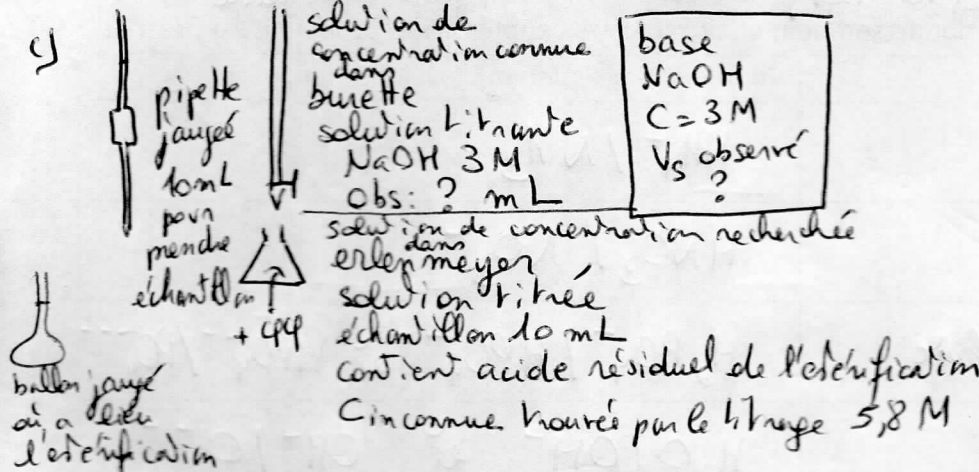 c)
pipette
jaugeé
10 mL
pour
prendre
échantillon
ballon jaugé
où a lieu
l'estérification
solution de
concentration connue
dans
burette
solution titrante
NaOH 3 M
obs: ? mL
base
NaOH
C = 3 M
Vs observé
?
solution de concentration recherchée
dans
erlenmeyer
solution titrée
+ φφ
échantillon 10 mL
contient acide résiduel de l'estérification
C inconnue trouvée par le titrage 5,8 M